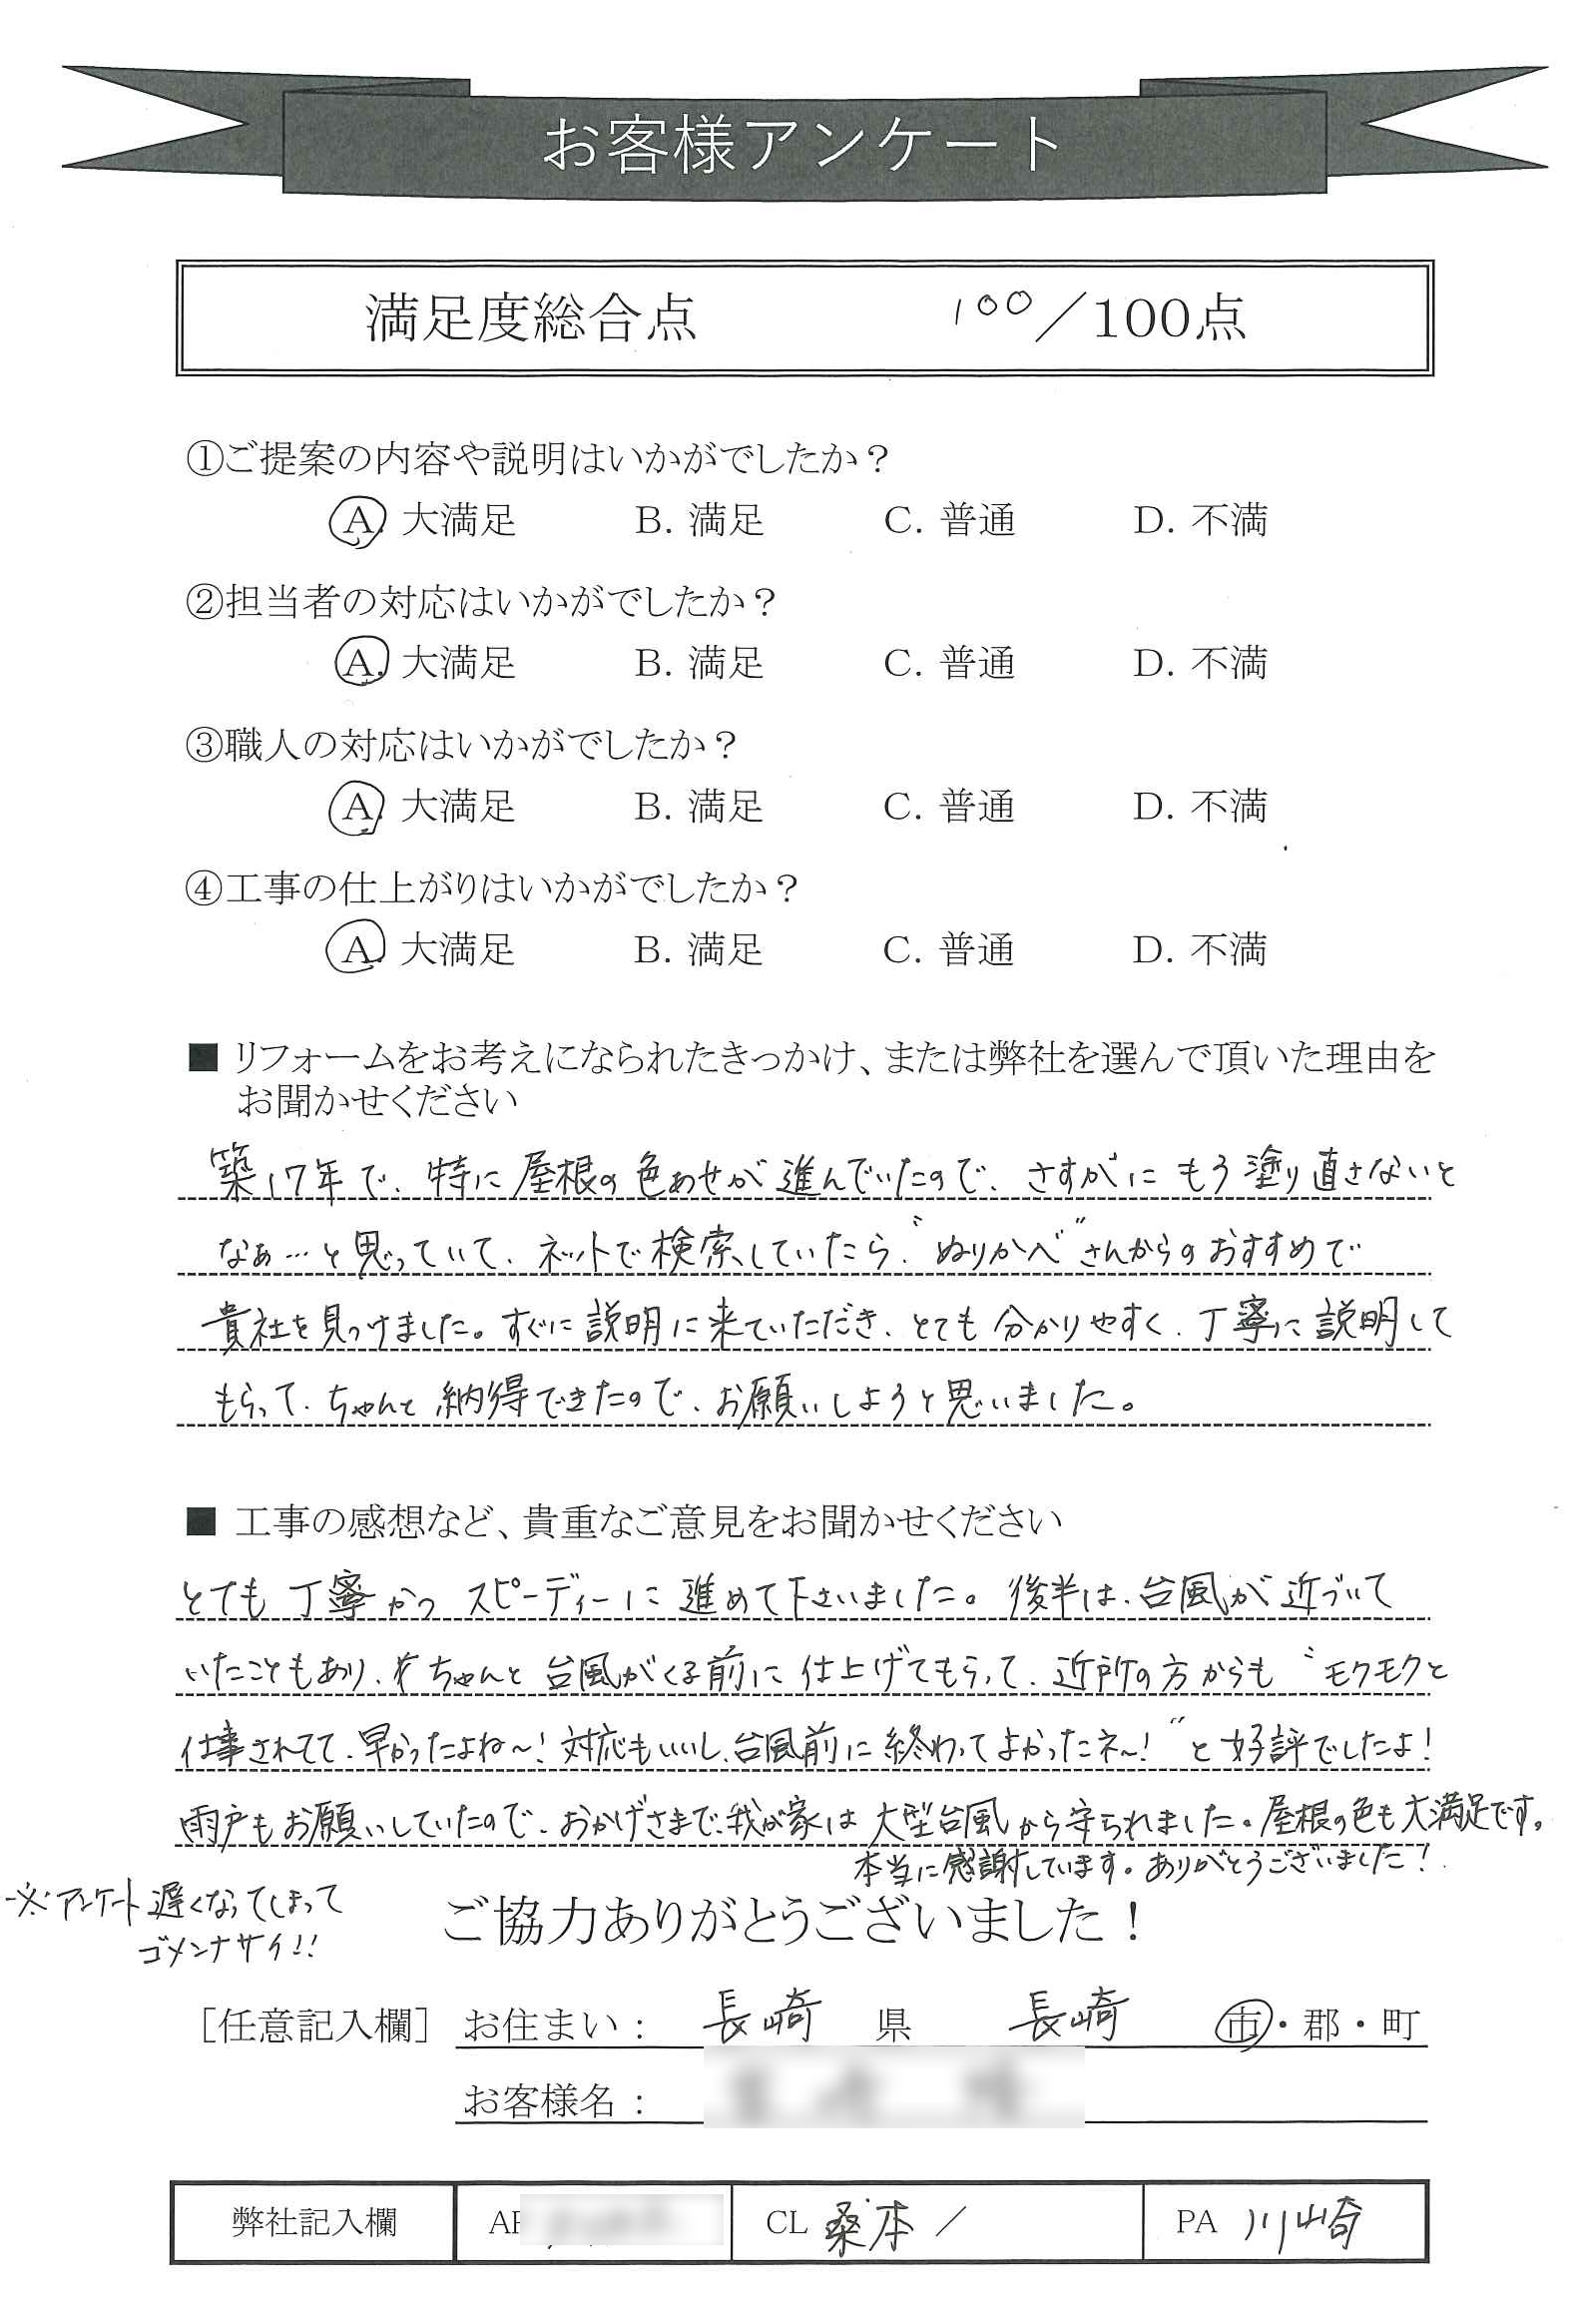 お客様アンケート
満足度総合点 100／100点
①ご提案の内容や説明はいかがでしたか？
A. 大満足 B. 満足 C. 普通 D. 不満
②担当者の対応はいかがでしたか？
A. 大満足 B. 満足 C. 普通 D. 不満
③職人の対応はいかがでしたか？
A. 大満足 B. 満足 C. 普通 D. 不満
④工事の仕上がりはいかがでしたか？
A. 大満足 B. 満足 C. 普通 D. 不満
■ リフォームをお考えになられたきっかけ、または弊社を選んで頂いた理由を
お聞かせください
築17年で、特に屋根の色あせが進んでいたので、さすがにもう塗り直さないと
なぁ…と思っていて、ネットで検索していたら、〝ぬりかべ〟さんからのおすすめで
貴社を見つけました。すぐに説明に来ていただき、とても分かりやすく、丁寧に説明して
もらって、ちゃんと納得できたので、お願いしようと思いました。
■ 工事の感想など、貴重なご意見をお聞かせください
とても丁寧かつスピーディーに進めて下さいました。後半は、台風が近づいて
いたこともあり、ちゃんと台風がくる前に仕上げてもらって、近所の方からも〝モクモクと
仕事されてて、早かったよね〜！対応もいいし、台風前に終わってよかったネ〜！〟と好評でしたよ！
雨戸もお願いしていたので、おかげさまで、我が家は大型台風から守られました。屋根の色も大満足です。
本当に感謝しています。ありがとうございました！
※アンケート遅くなってしまって
ゴメンナサイ!!
ご協力ありがとうございました！
［任意記入欄］ お住まい： 長崎 県 長崎 市・郡・町
お客様名：
弊社記入欄 CL 桑本 ／ PA 川崎